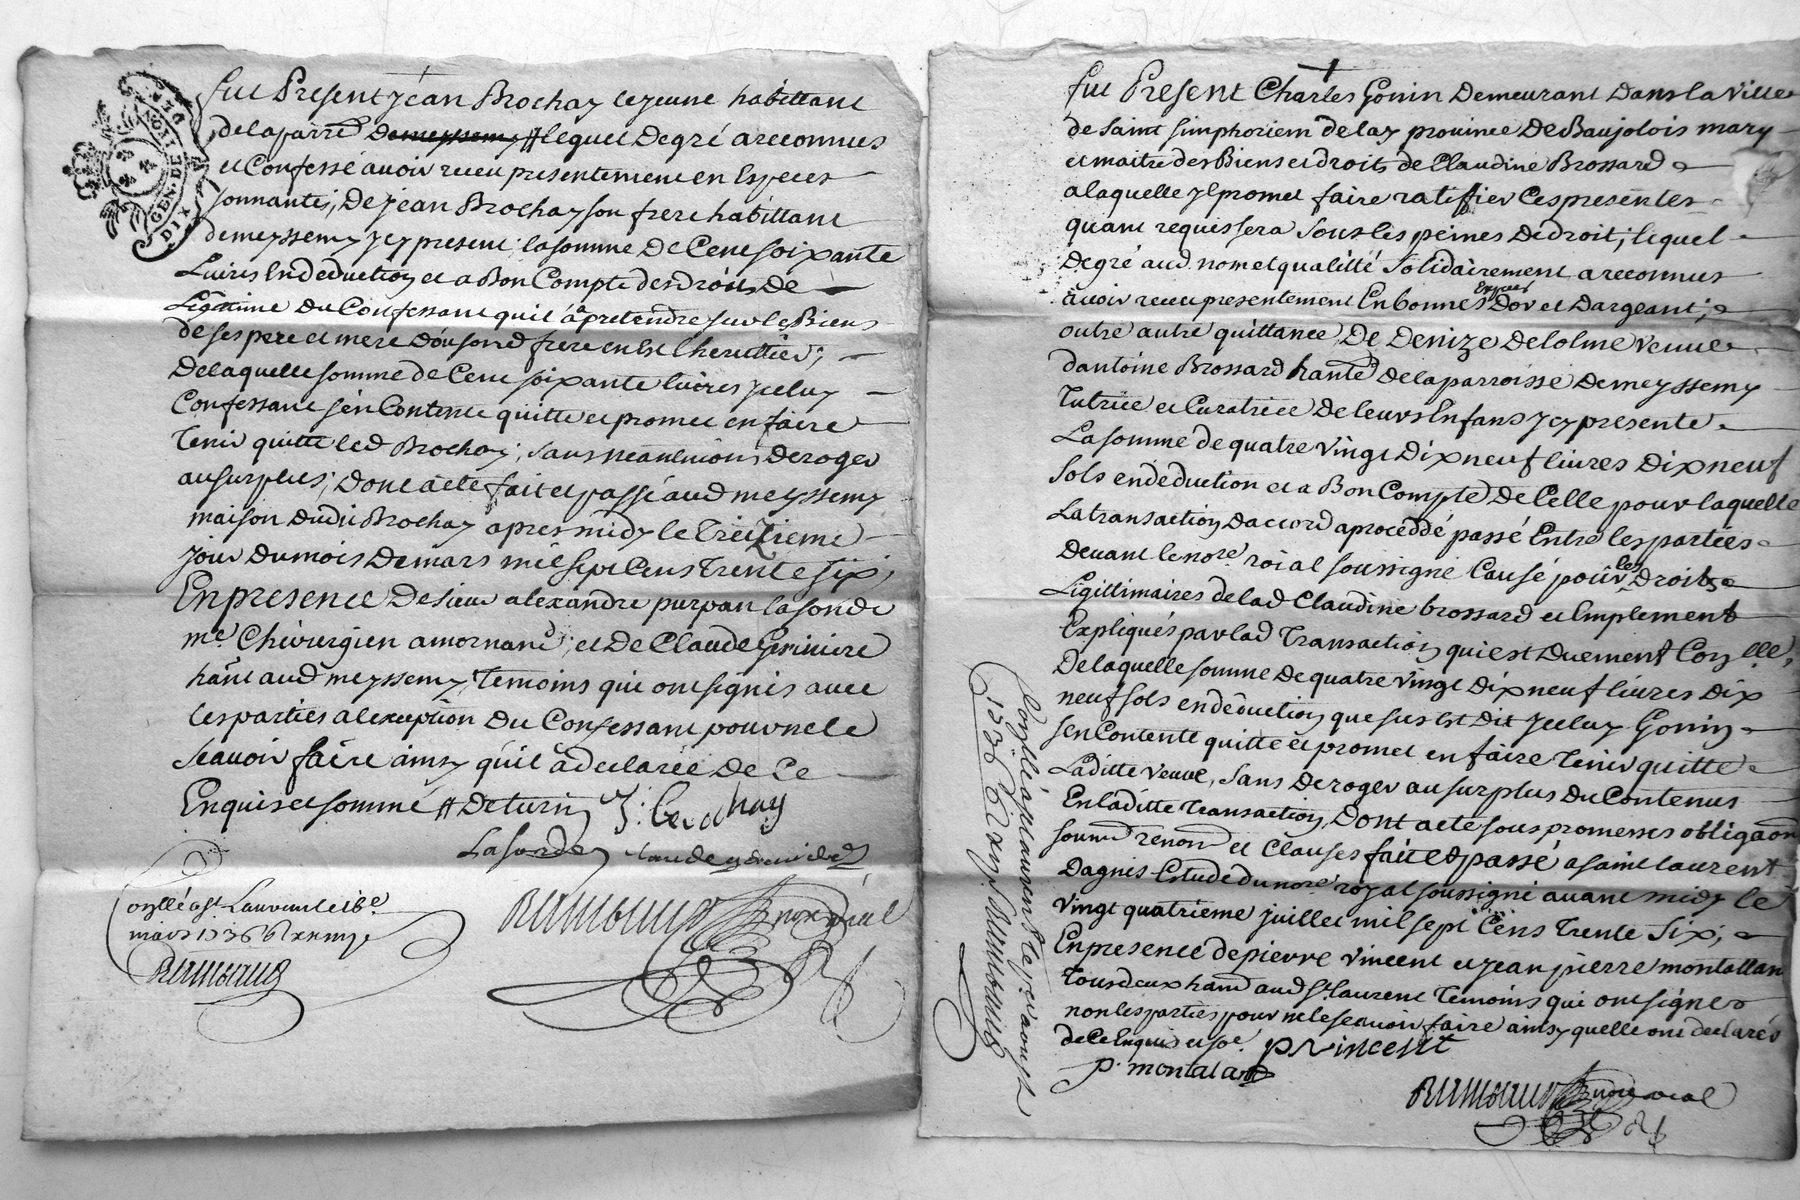 GEN. DE LION
DIX
Fut Present Jean Brochay lejeune habittant
delaparre demeyssemy # lequel Degré areconnus
et Confessé avoir receu presentement en Especes
sonnantes, De jean Brochay son frere habittant
demeyssemy Jcy present, lasomme De Cent soixante
Livres En deduction et a Bon Compte desdroits De
Legitime Du Confessant qu'il a apretendre sur le Biens
de ses pere et mere dousond frere en Est Lherittier;
Delaquelle somme de Cent soixante livres Jceluy
Confessant s'en Contente quitte et promet en faire
Tenir quitte led Brochay; sans neanmoins Deroger
ausurplus; Dont acte fait et passé aud meyssemy
maison dudit Brochay apres midy le Treizieme
jour Dumois Demars mil sept Cens Trente six,
En presence De sieur alexandre purpan lasonde
me. Chirurgien amornand; et De Claude
hant aud meyssemy, Temoins qui ont signés avec
les parties al'exeption Du Confessant pour ne le
scavoir faire ainsy qu'il a declarée De Ce
Enquis et sommé # Deturin J. brochay
Lasonde claude
notre roial
Laurent le 18e
mars 1736
Fut Present Charles Gonin Demeurant Dans la Ville
de Saint simphorien delay province De Baujolois mary
et maitre des Biens et droits de Claudine Brossard
a laquelle Jl promet faire ratiffier Cespresentes
quant requis sera sous les peines dedroit; lequel
Degré aud nom et qualitté Solidairement areconnus
Especes
avoir receu presentement En bonnes Dor et Dargeant;
outre autre quittance, De Denize Delolme veuve
dantoine Brossard hante delaparroisse Demeyssemy
Tutrice et Curatrice De leurs Enfans Jcy presente
La somme de quatre vingt Dix neuf livres Dix neuf
sols en deduction et a Bon Compte De Celle pour laquelle
La transaction Daccord a procedé passé Entre les parties
devant le nore. roial soussigné Causé pour les Droits
Ligittimaires de lad Claudine brossard et Emplement
Expliqués par lad Transaction qui est Duement Conllée,
De laquelle somme De quatre vingt Dix neuf livres Dix
neuf sols en deduction que sus Est Dit Jceluy Gonin
sen Contente quitte et promet en faire Tenir quitte
Laditte veuve, sans Deroger au surplus Du Contenus
En laditte Transaction, Dont acte sous promesses obligaon
soumd renond et Clauses fait et passé a saint laurent
Dagnis Estude du nore. royal soussigné avant midy le
vingt quatrieme juillet mil sept Cens Trente Six,
En presence de pierre vincent et Jean pierre montallan
Tous deux hand aud St. laurent Temoins qui ont signés
non les parties pour ne le scavoir faire ainsy quelle ont declarés
de Ce Enquis et soé. P VINCENT
p. montaland
notre roial